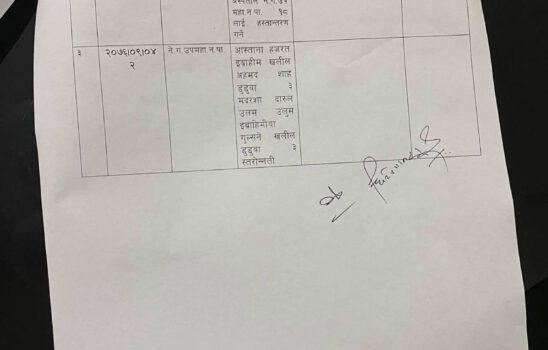 अस्पताल न.ग.उप
महा.न.पा. १८
लाई हस्तान्तरण
गर्ने
३
२०७६।०९।०४
२
ने.ग.उपमहा.न.पा.
आस्ताना हजरत
इब्राहीम खलील
अहमद शाह
डुडुवा ३
मदरशा दारुल
उलम उलुम
इब्राहिमीया
गुल्सने खलील
डुडुवा ३
स्तरोन्नती